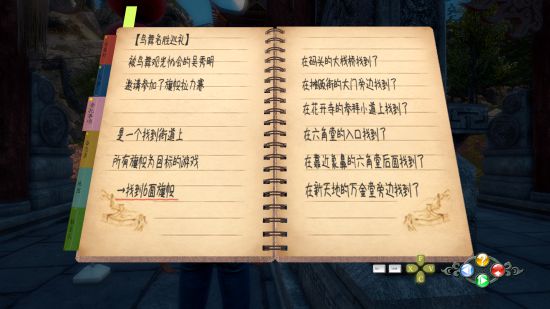 【鸟舞名胜巡礼】
被鸟舞观光协会的吴秀明
邀请参加了旗帜拉力赛
是一个找到街道上
所有旗帜为目标的游戏
→找到6面旗帜
在码头的大栈桥找到了
在神版街的大门旁边找到了
在花开寺的参拜小道上找到了
在六角堂的入口找到了
在靠近象鼻的六角堂后面找到了
在新天地的万金堂旁边找到了